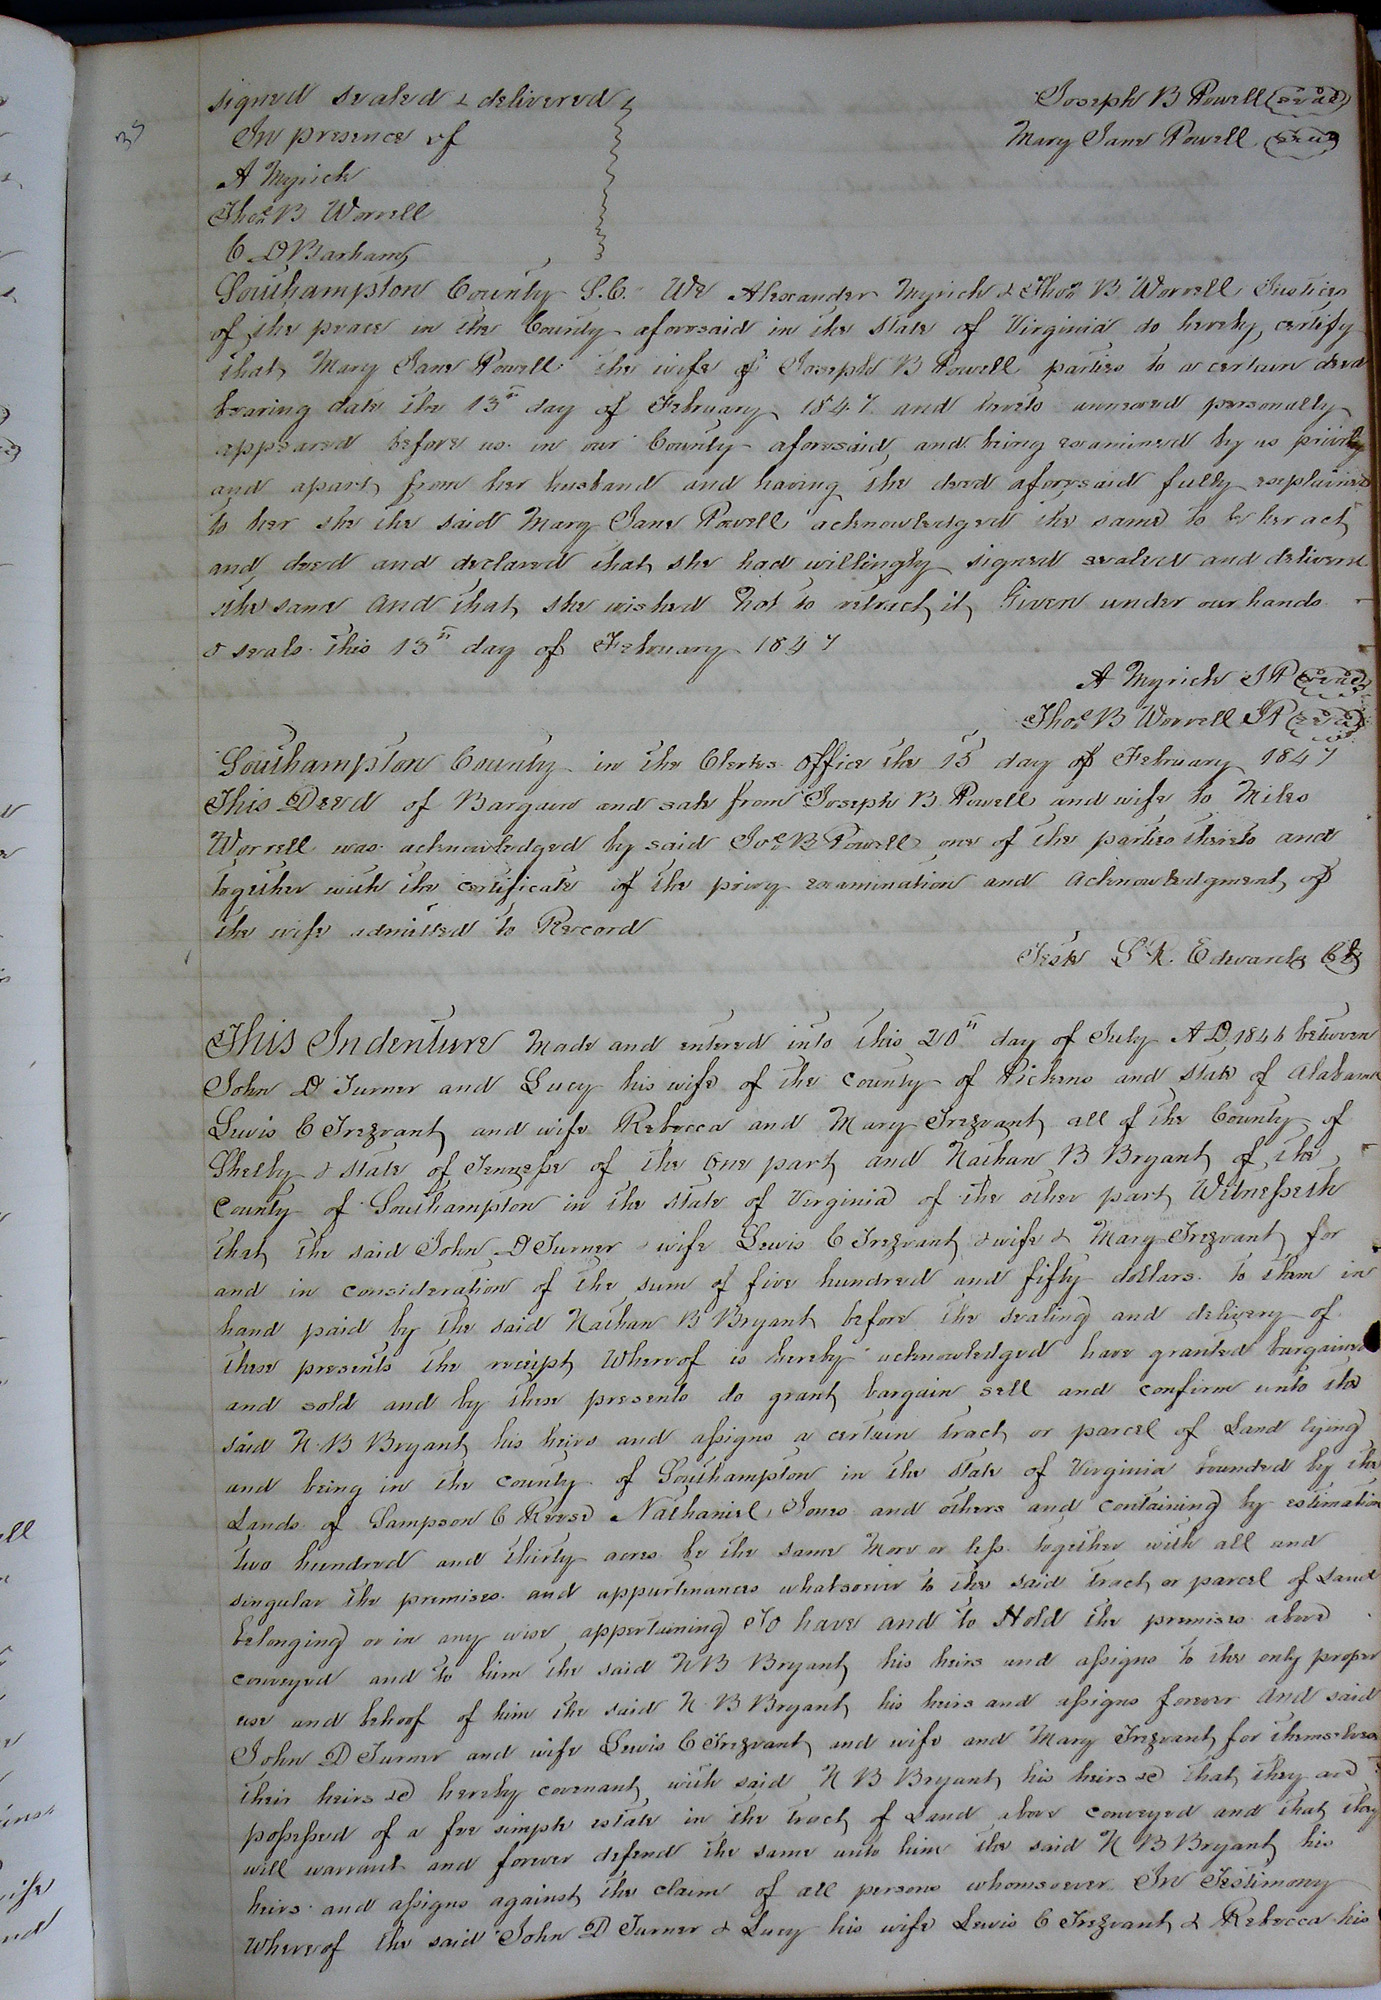 signed sealed & delivered
Joseph B Powell (seal)
In presence of
Mary Jane Powell (seal)
A Myrick
Thos B Worrell
C D Barham
Southampton County S.C. We Alexander Myrick & Thos B Worrell Justices
of the peace in the County aforesaid in the State of Virginia do hereby certify
that Mary Jane Powell the wife of Joseph B Powell parties to a certain deed
bearing date the 13th day of February 1847 and hereto annexed personally
appeared before us in our County aforesaid and being examined by us privily
and apart from her husband and having the deed aforesaid fully explained
to her she the said Mary Jane Powell acknowledged the same to be her act
and deed and declared that she had willingly signed sealed and delivered
the same And that she wished Not to retract it, Given under our hands
& seals this 13th day of February 1847
A Myrick JP (seal)
Thos B Worrell JP (seal)
Southampton County in the Clerks Office the 15 day of February 1847
This Deed of Bargain and sale from Joseph B. Powell and wife to Miles
Worrell was acknowledged by said Jos B Powell one of the parties thereto and
together with the certificate of the privy examination and Acknowledgment of
the wife admitted to Record
Teste L R. Edwards Clk
This Indenture Made and entered into this 20th day of July A D 1846 between
John D Turner and Lucy his wife of the county of Pickens and State of Alabama
Lewis C Trezvant and wife Rebecca and Mary Trezvant all of the County of
Shelby & state of Tennessee of the One part and Nathan B Bryant of the
County of Southampton in the state of Virginia of the other part Witnesseth
that the said John D Turner & wife Lewis C Trezvant & wife & Mary Trezvant for
and in consideration of the sum of five hundred and fifty dollars to them in
hand paid by the said Nathan B Bryant before the sealing and delivery of
these presents the receipt Whereof is hereby acknowledged have granted bargained
and sold and by these presents do grant bargain sell and confirm unto the
said N. B Bryant his heirs and assigns a certain tract or parcel of Land lying
and being in the county of Southampton in the State of Virginia bounded by the
Lands of Sampson C Reese Nathaniel Jones and others and containing by estimation
two hundred and thirty acres be the same More or less together with all and
singular the premises and appurtenances whatsoever to the said tract or parcel of Land
belonging or in any wise appertaining To have and to Hold the premises above
conveyed and to him the said N B Bryant his heirs and assigns to the only proper
use and behoof of him the said N. B Bryant his heirs and assigns forever And said
John D Turner and wife Lewis C Trezvant and wife and Mary Trezvant for themselves
their heirs &c hereby covenant with said N B Bryant his heirs &c that they are
possessed of a fee simple estate in the tract of Land above conveyed and that they
will warrant and forever defend the same unto him the said N B Bryant his
heirs and assigns against the claim of all persons whomsoever In Testimony
Whereof the said John D Turner & Lucy his wife Lewis C Trezvant & Rebecca his